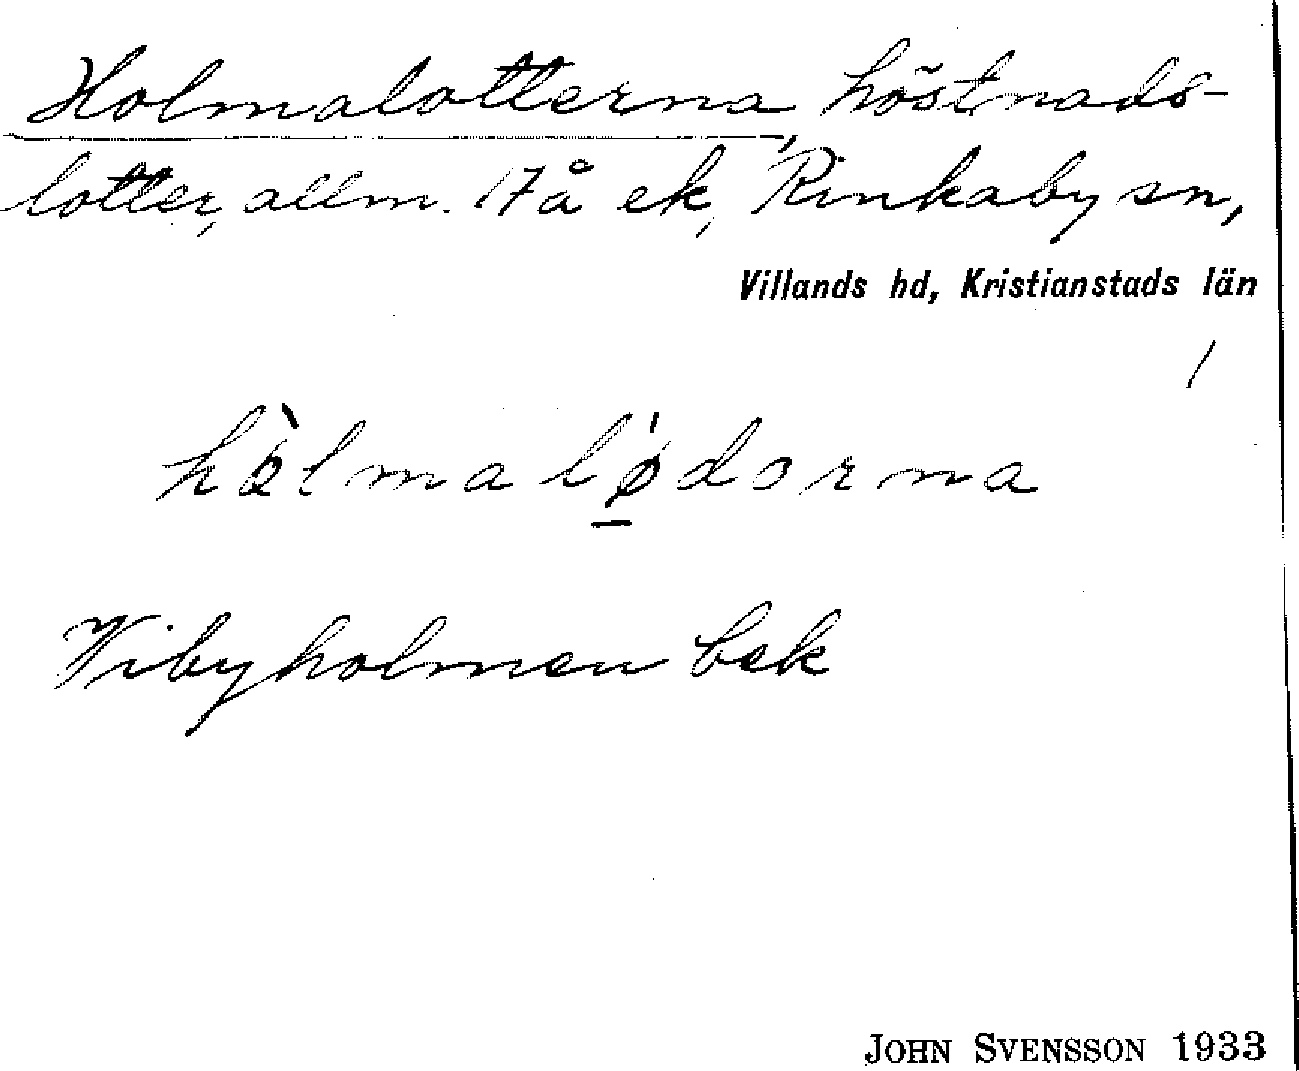 Holmalotterna, höstnads-
lotter, allm. 17 å ek, Rinkaby sn,
Villands hd, Kristianstads län
/
hòlmalǿdorna
Vibyholmen bek
JOHN SVENSSON 1933